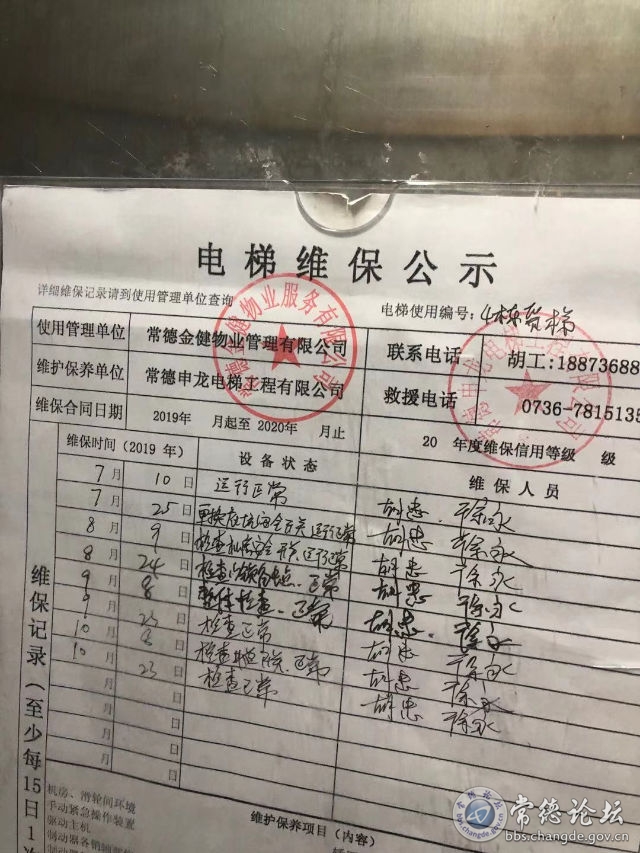 电梯维保公示
详细维保记录请到使用管理单位查询
电梯使用编号：4栋货梯
使用管理单位 常德金健物业管理有限公司 联系电话 胡工:18873688
维护保养单位 常德申龙电梯工程有限公司 救援电话 0736-7815135
维保合同日期 2019年 月起至 2020年 月止 20 年度维保信用等级 级
维保时间（2019 年） 设备状态 维保人员
7月 10日 运行正常 胡忠 徐永
7月 25日 更换底坑安全开关 运行正常 胡忠 徐永
8月 9日 检查机房安全开关 运行正常 胡忠 徐永
8月 24日 检查 正常 胡忠 徐永
9月 8日 整体检查、正常 胡忠 徐永
9月 23日 检查正常 胡忠 徐永
10月 8日 检查 正常 胡忠 徐永
10月 23日 检查正常 胡忠 徐永
月 日
月 日
月 日
维保记录（至少每15日1次
机房、滑轮间环境
手动紧急操作装置
驱动主机
制动器各销轴部
维护保养项目（内容）
物业服务有限公司
常德论坛
bbs.changde.gov.cn